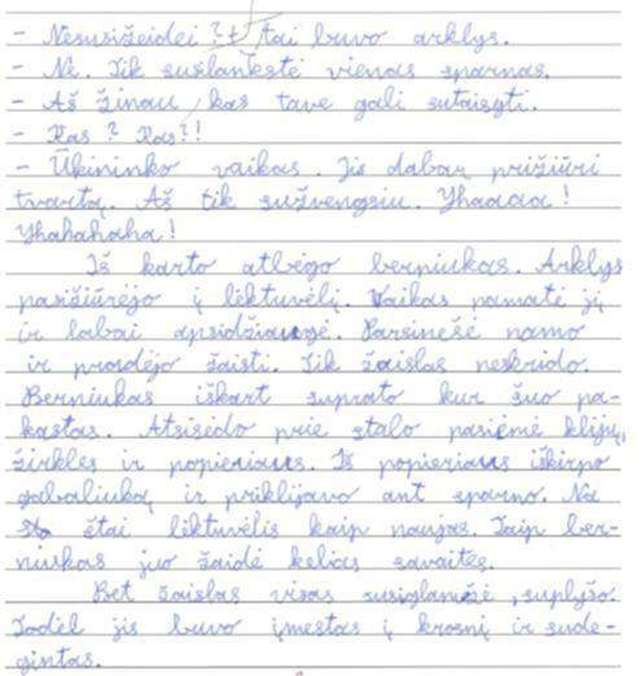 - Nesusižeidei? tai buvo arklys.
- Ne. Tik suslankstė vienas sparnas.
- Aš žinau, kas tave gali sutaisyti.
- Kas? Kas?!
- Ūkininko vaikas. Jis dabar prižiūri
tvartą. Aš tik sužvengsiu. Yhaaaa!
Yhahahaha!
Iš karto atbėgo berniukas. Arklys
pasižiūrėjo į lėktuvėlį. Vaikas pamatė jį
ir labai apsidžiaugė. Parsinešė namo
ir pradėjo žaisti. Tik žaislas neskrido.
Berniukas iškart suprato kur šuo pa-
kastas. Atsisėdo prie stalo pasiėmė klijų,
žirkles ir popieriaus. Iš popieriaus iškirpo
gabaliuką ir priklijavo ant sparno. Na
štai lėktuvėlis kaip naujas. Taip ber-
niukas juo žaidė kelias savaites.
Bet žaislas visas susiglamžė, suplyšo.
Todėl jis buvo įmestas į krosnį ir sude-
gintas.